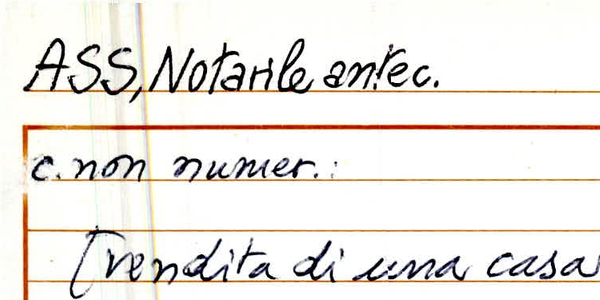 ASS, Notarile antec.
c. non numer.:
[vendita di una casa